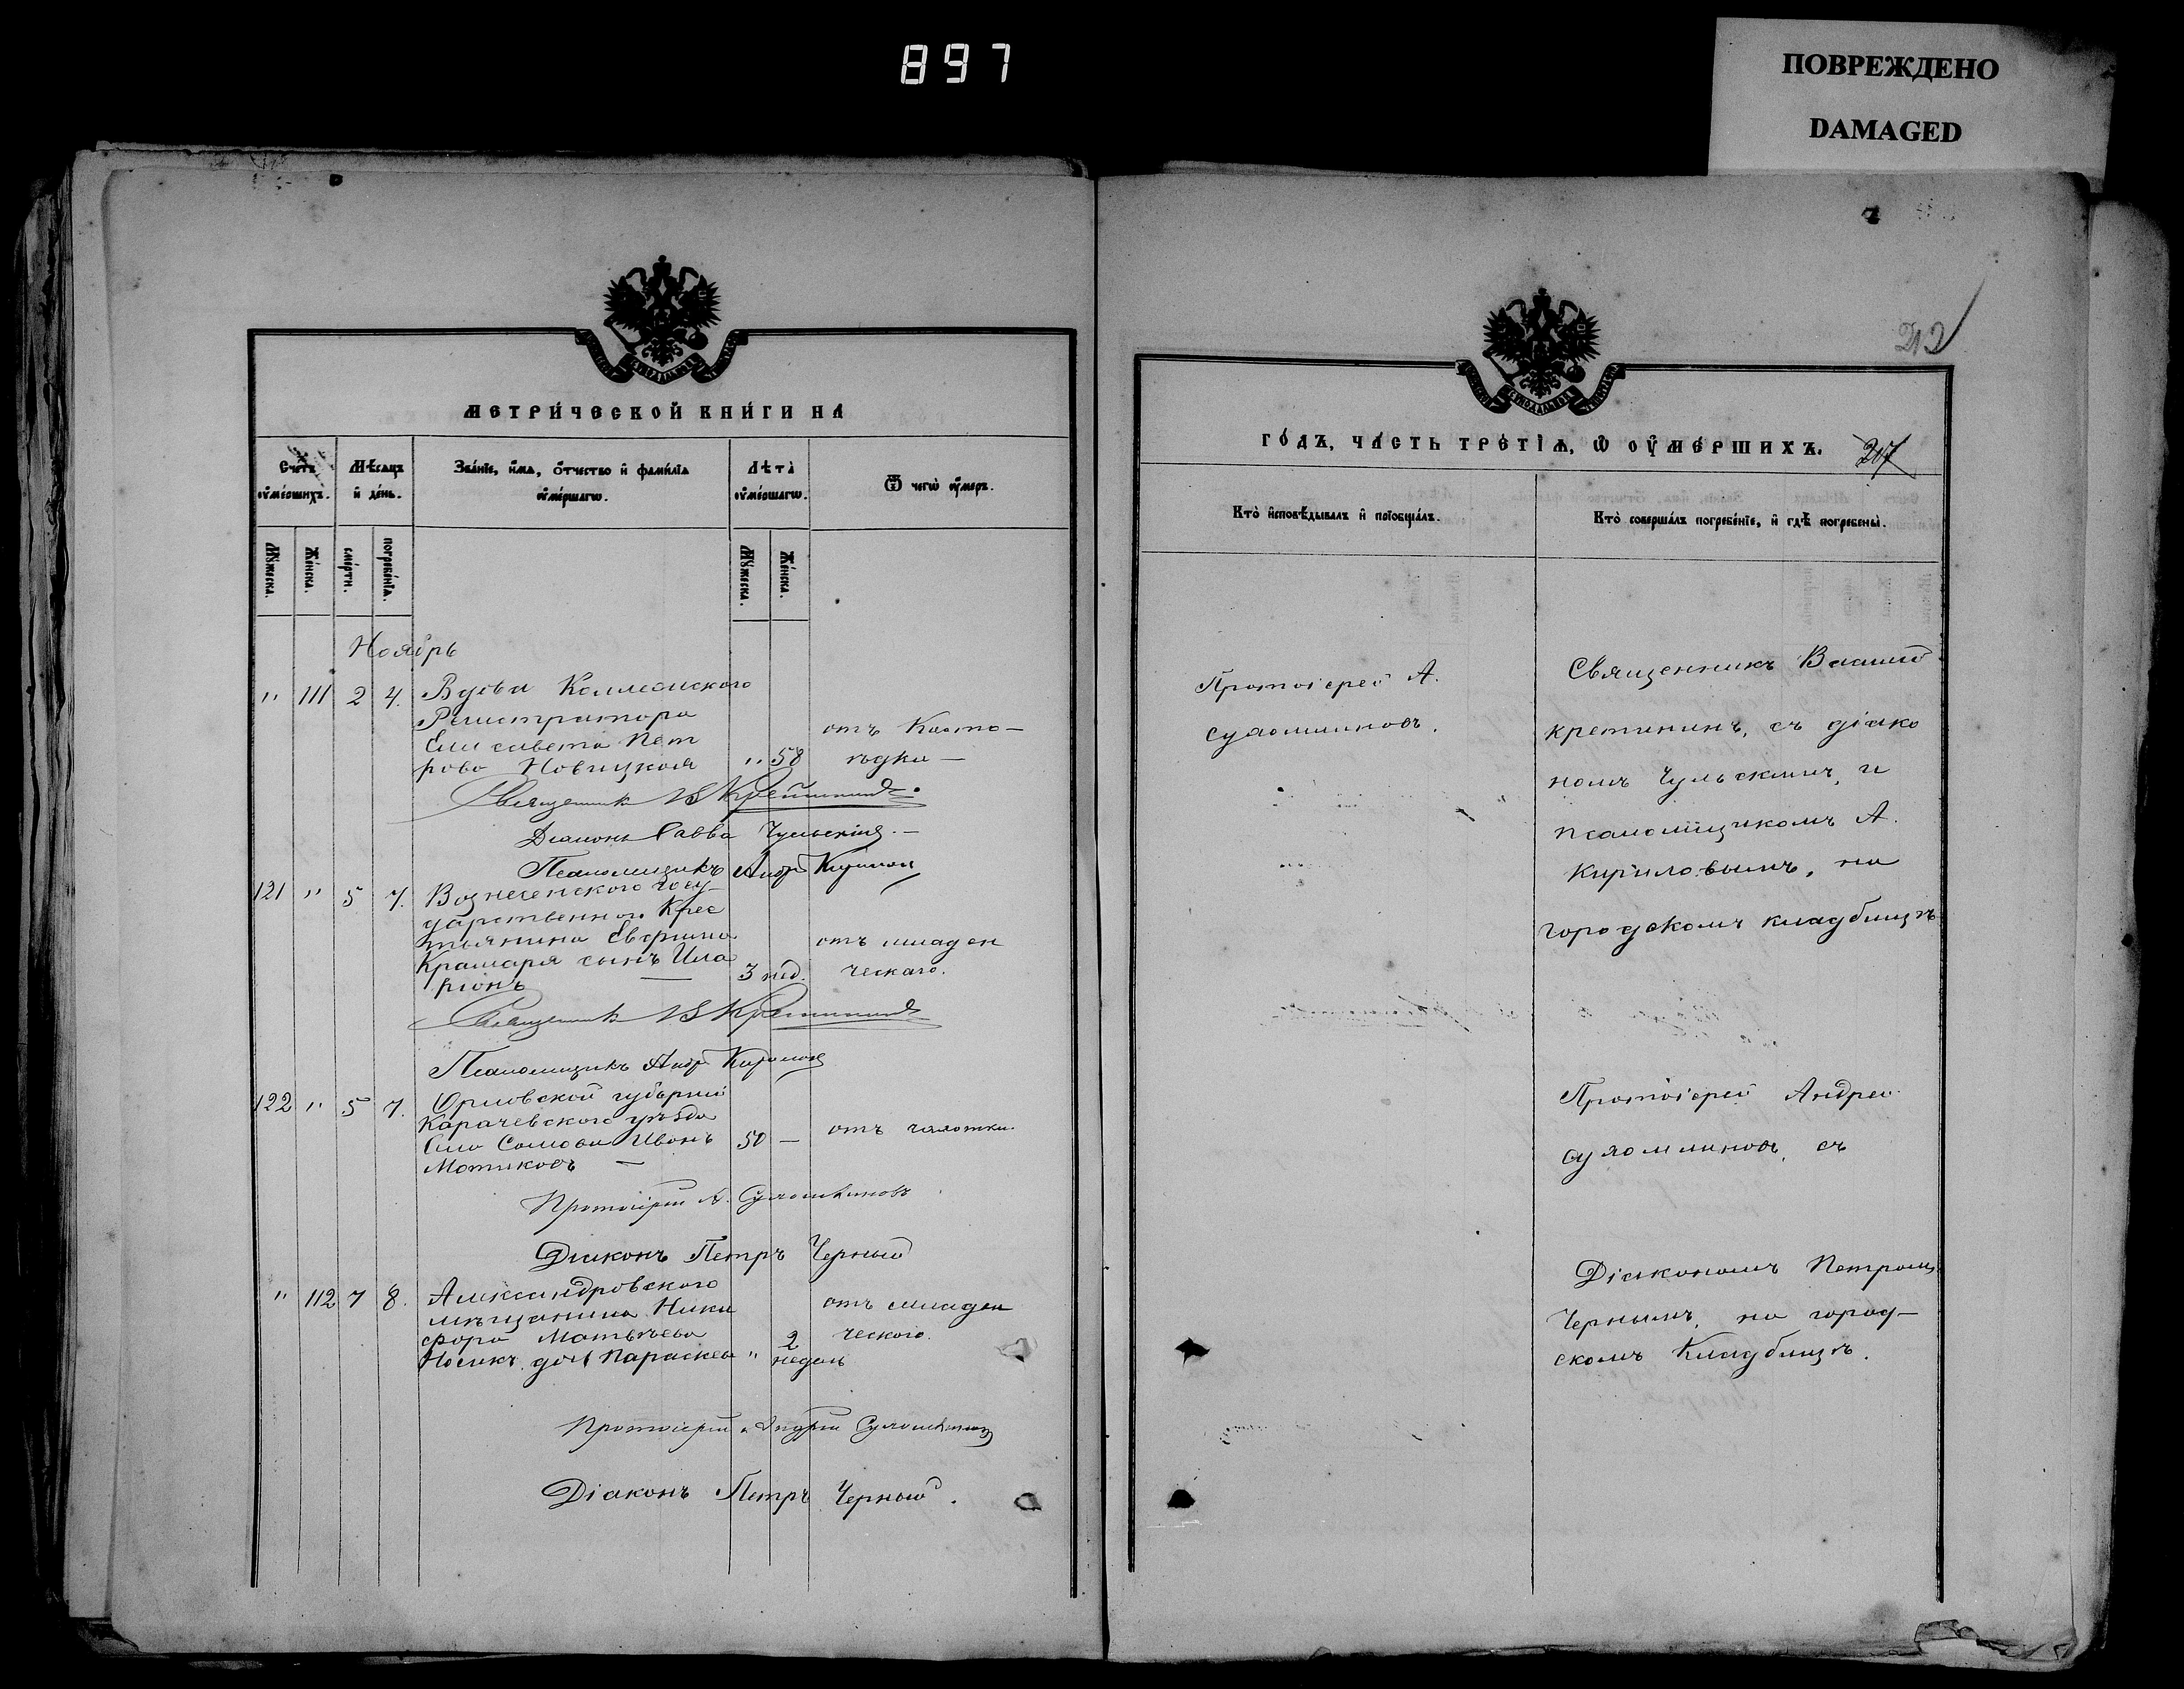 897
ПОВРЕЖДЕНО
DAMAGED
МЕТРИ́ЧЕСКОЙ КНИ́ГИ НА
Счетъ оу҆ме́ршихъ.
Мѣ́сяцъ и҆ де́нь.
Зва́нїе, и҆́мѧ, ѻ҆́тчество и҆ фами́лїѧ оу҆ме́ршагѡ.
Лѣта̀ оу҆ме́ршагѡ.
Ѿ чегѡ̀ оу҆́меръ.
Мꙋ́жеска.
Же́нска.
сме́рти.
погребе́нїѧ.
Мꙋ́жеска.
Же́нска.
Ноябрь
" 111 2 4. Вдова Коллежского
Регистратора
Елисавета Пет
рова Новицкая " 58
отъ Каста-
ѣдки -
Священникъ В Кретининъ.
Діаконъ Савва Чульскій. -
Псаломщикъ Андр Кирилов
121 " 5 7. Вознесенского Госу-
дарственного Крес
тьянина
Крамаря сынъ Ила
ріонъ — 3 нед.
отъ младен
ческаго.
Священникъ В Кретининъ
Псаломщикъ Андр Кирилов
122 " 5 7. Орловской губерніи
Карачевского уѣзда
Иванъ 50 —
Мотиковъ —
отъ чахотки.
Протоіерей А. Сулошкиновъ
Діаконъ Петръ Черный
" 112 7 8. Александровского
мѣщанина Ники
фора Матвѣева
Носикъ дочь Параскева " 2 недѣль
отъ младен
ческого.
Протоіерей Андрей
Діаконъ Петръ Черный.
212
ГО́ДЪ, ЧА́СТЬ ТРЕ́ТЇѦ, Ѡ҆ ОУ҆МЕ́РШИХЪ.
217
Кто̀ и҆сповѣ́дывалъ и҆ прїобща́лъ.
Кто̀ соверша́лъ погребе́нїе, и҆ гдѣ̀ погребены̀.
Протоіерей А.
Священникъ
Кретининъ, съ діако
номъ Чульскимъ, и
псаломщикомъ А.
Кириловымъ, на
городскомъ кладбищѣ
Протоіерей Андрей
съ
Діякономъ Петромъ
Чернымъ, на город-
скомъ Кладбищѣ.